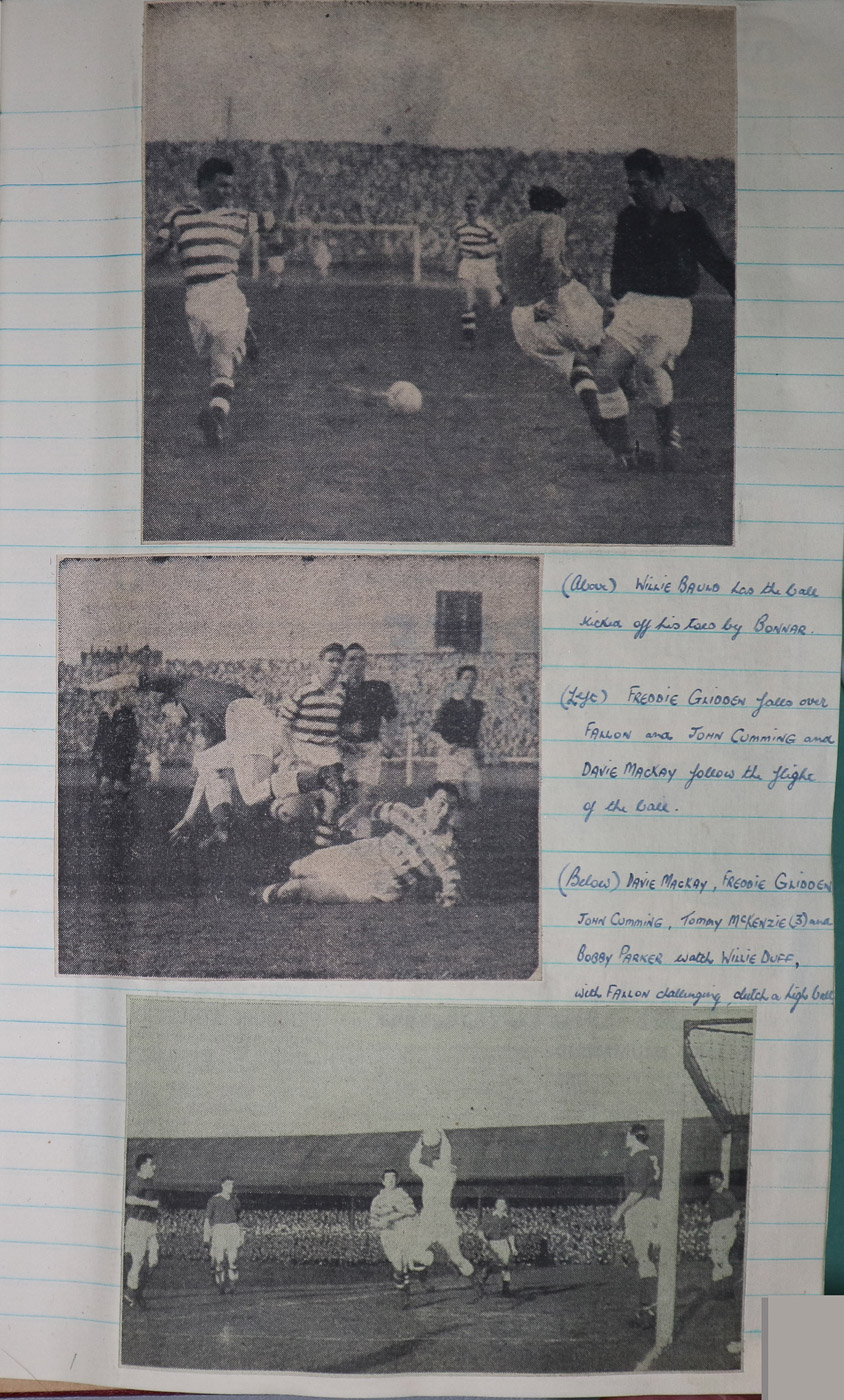 (Above) WILLIE BAULD has the ball
kicked off his toes by BONNAR.
(Left) FREDDIE GLIDDEN falls over
FALLON and JOHN CUMMING and
DAVIE MACKAY follow the flight
of the ball.
(Below) DAVIE MACKAY, FREDDIE GLIDDEN
JOHN CUMMING, TOMMY MCKENZIE (3) and
BOBBY PARKER watch WILLIE DUFF,
with FALLON challenging, clutch a high ball
3